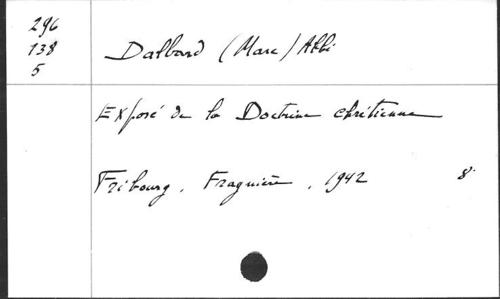 296
138
5
Dalbard (Marc) Abbé
Exposé de la Doctrine chrétienne
Fribourg, Fragnière, 1942 8°